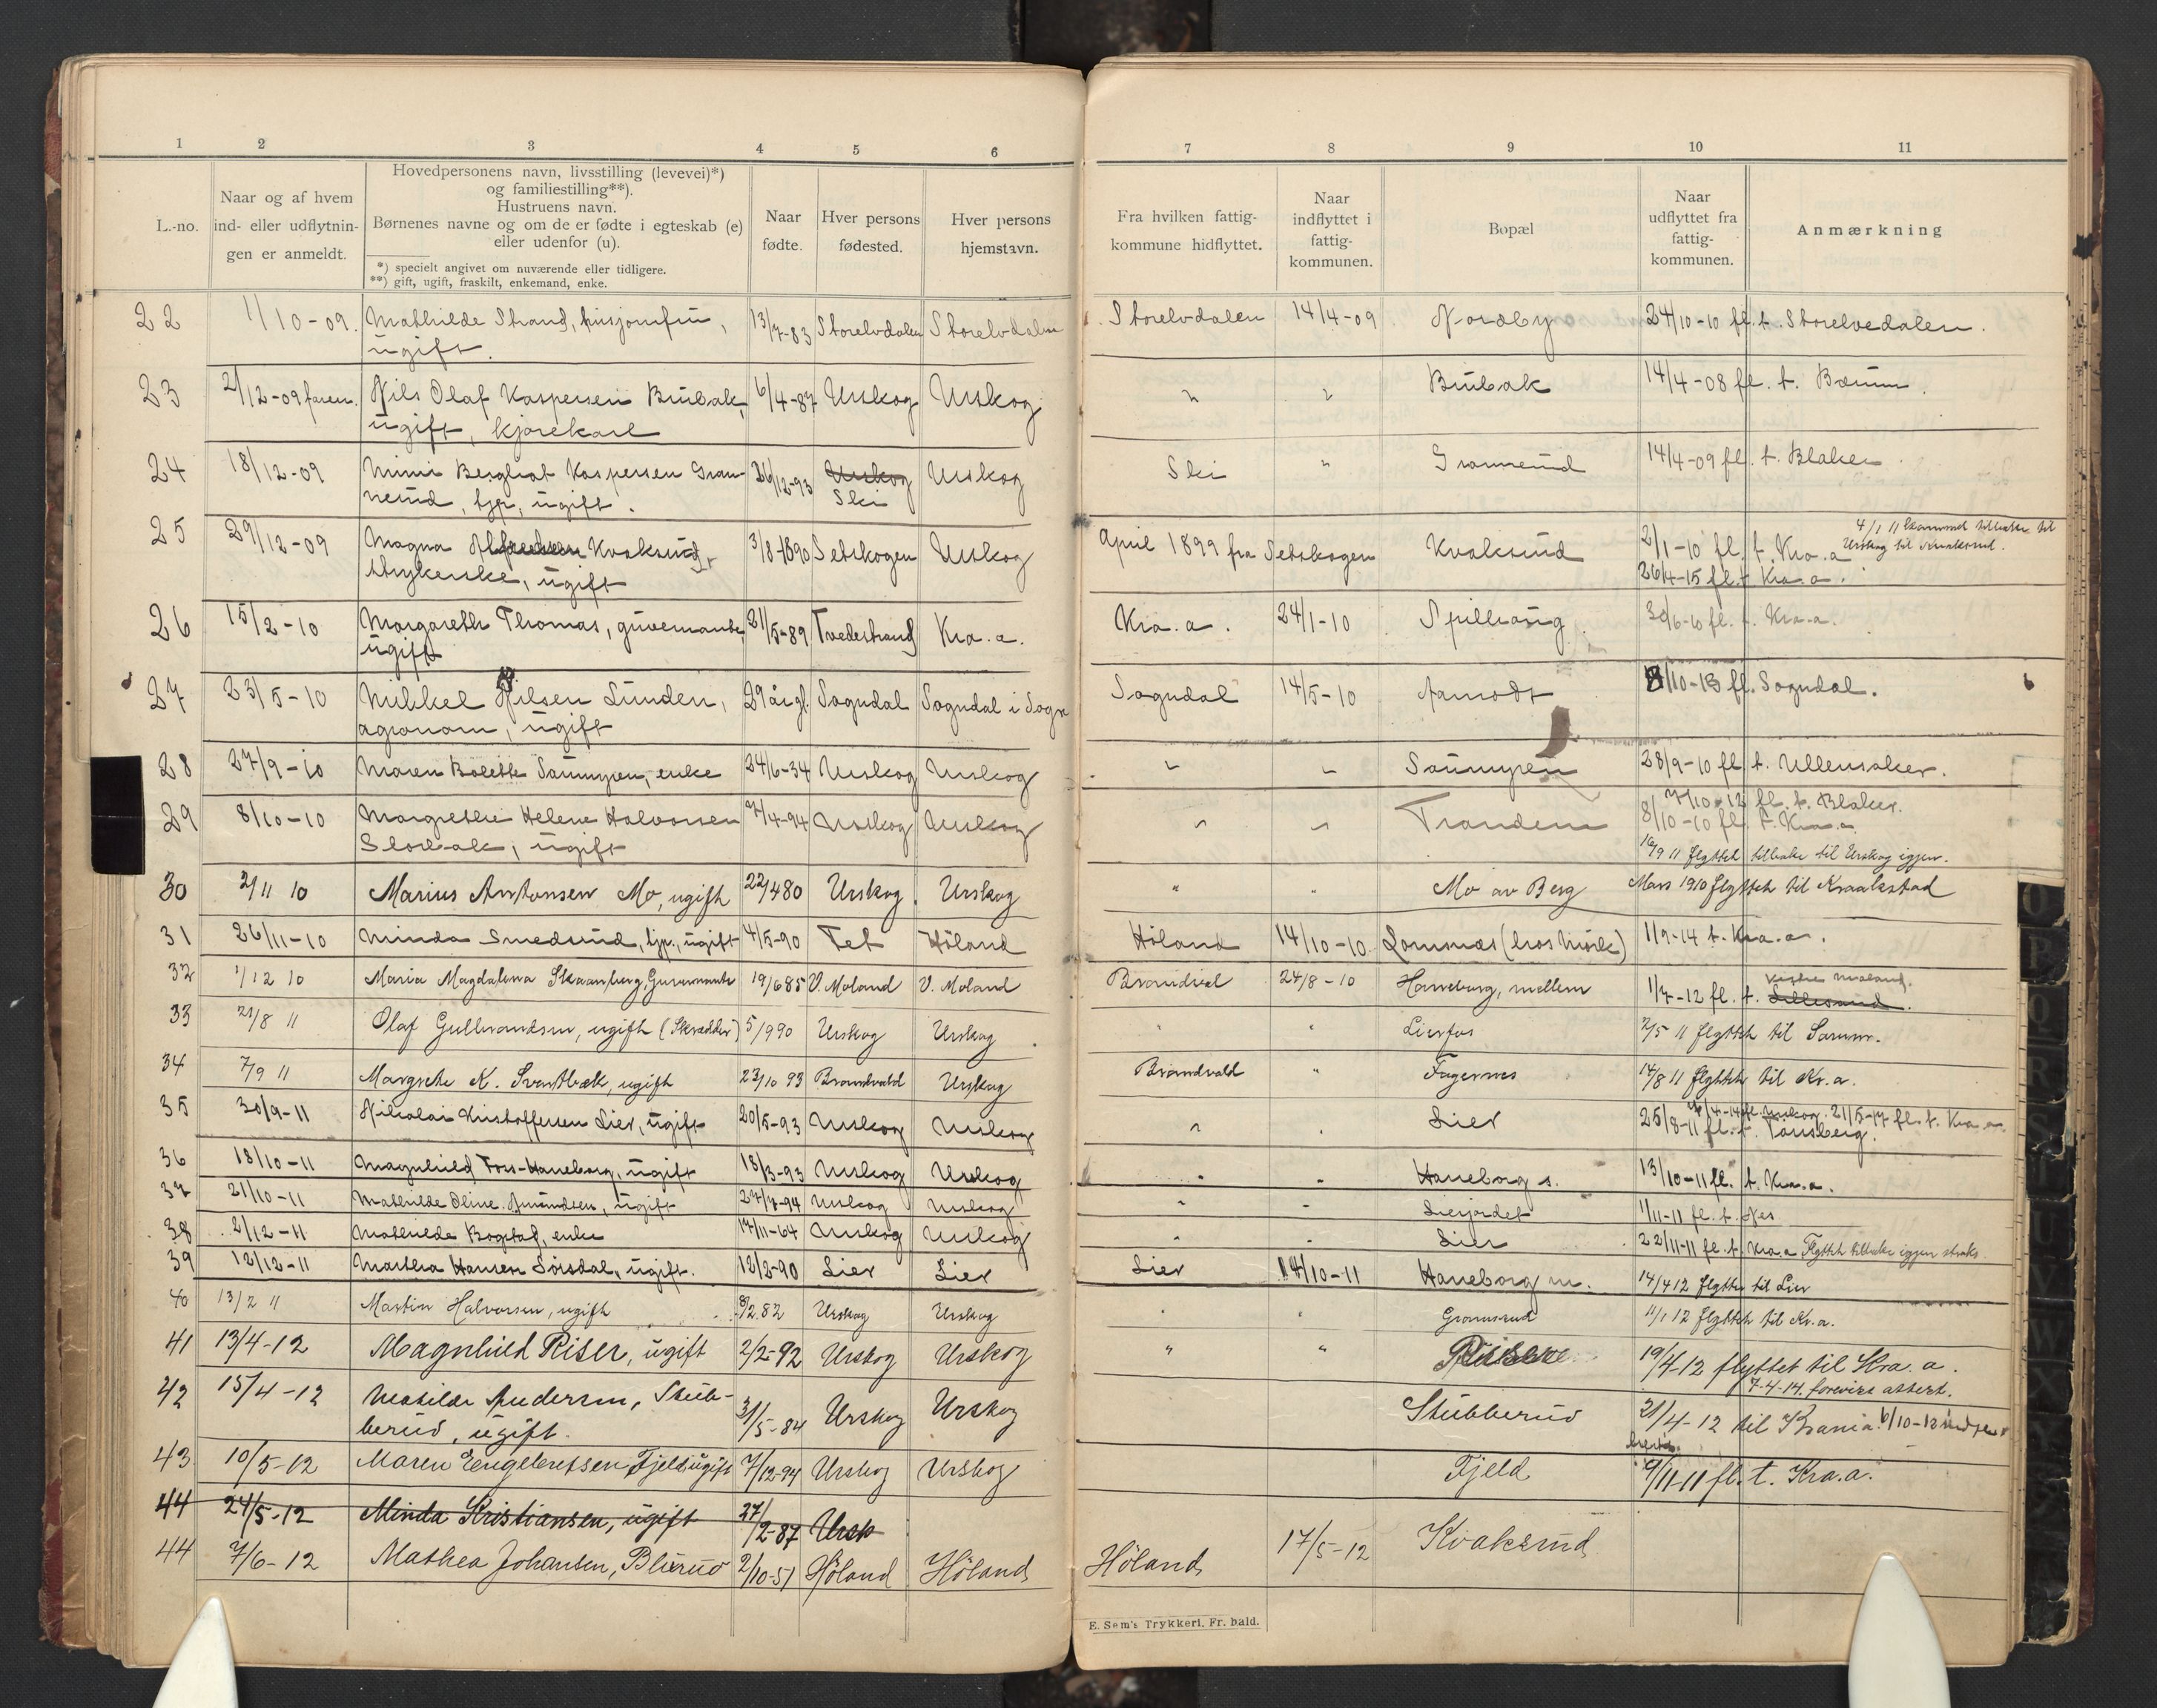 1 2 3 4 5 6 7 8 9 10 11
L.-no.
Naar og af hvem
ind- eller udflytnin-
gen er anmeldt.
Hovedpersonens navn, livsstilling (levevei)*)
og familiestilling**).
Hustruens navn.
Børnenes navne og om de er fødte i egteskab (e)
eller udenfor (u).
*) specielt angivet om nuværende eller tidligere.
**) gift, ugift, fraskilt, enkemand, enke.
Naar
fødte.
Hver persons
fødested.
Hver persons
hjemstavn.
Fra hvilken fattig-
kommune hidflyttet.
Naar
indflyttet i
fattig-
kommunen.
Bopæl
Naar
udflyttet fra
fattig-
kommunen.
Anmærkning
22 1/10-09. Mathilde Strand, husjomfru, 13/7-83 Storelvdalen Storelvdalen Storelvdalen 14/4-09 Nordby 24/10-10 fl. t. Storelvedalen.
ugift.
23 2/12-09 faren. Nils Olaf Kaspersen Brubak, 6/4-87 Urskog Urskog " " Brubak 14/4-08 fl. t. Bærum.
ugift, kjørekarl
24 18/12-09 Mimi Bergliot Kaspersen Gran- 26/12-93 Urskog Urskog Ski " Grannerud 14/4-09 fl. t. Blaker
nerud, tjp, ugift. Ski
4/1 11 kommet tilbake til
25 29/12-09 Magna Kvaksrud, 3/8-1890 Setskogen Urskog April 1899 fra Setskogen Kvaksrud 2/1-10 fl. t. Kra.a Urskog til Kvaksrud.
strykerske, ugift 26/4-15 fl. t Kra.a.
26 15/2-10 Margareth Thomas, guvernante 21/5-89 Tvedestrand Kra.a. Kra.a. 24/1-10 Spillhaug 30/6-10 fl. t. Kra.a.
ugift
27 23/5-10 Mikkel Nilsen Lunden, 29 år gl. Sogndal Sogndal i Sogn Sogndal 14/5-10 Aamodt 8/10-13 fl. Sogndal.
agronom, ugift
28 27/9-10 Maren Bolette Saumyren, enke 24/6-34 Urskog Urskog " " Saumyren 28/9-10 fl. t. Ullensaker.
7/10-12 fl. t. Blaker.
29 8/10-10 Margrethe Helene Halvorsen 7/4-94 Urskog Urskog " " Trandem 8/10-10 fl. t. Kra.a
Storbak, ugift 16/9 11 flyttet tilbake til Urskog igjen.
30 2/11 10 Marius Antonsen Mo, ugift 22/4 80 Urskog. Urskog " " Mo av Berg Mars 1910 flyttet til Kraakstad
31 26/11-10 Minda Smedsrud, tjp., ugift 4/5-90 Fet Höland Höland 14/10-10. Lommæs (hos Mørk) 1/9-14 t. Kra.a.
32 1/12 10 Maria Magdalena Skaanberg, Guvernante 19/6 85 V. Moland V. Moland Brandval 24/8-10 Haneborg, mellem 1/7-12 fl. t. Lillesand. Vestre Moland.
33 21/8 11 Olaf Gulbrandsen, ugift (Skrædder) 5/9 90 Urskog Urskog " " Lierfos 2/5 11 flyttet til Sørum.
34 7/9 11 Margrethe K. Svartbæk, ugift 23/10 93 Brandvald Urskog Brandvald " Fagernes 17/8 11 flyttet til Kr.a.
35 30/9-11 Nikolai Kristoffersen Lier, ugift 20/5-93 Urskog Urskog " Lier 25/8-11 fl. t. Tønsberg. 21/5-17 fl. t. Kra.a.
36 18/10-11 Magnhild Foss-Haneborg, ugift 18/3-93 Urskog Urskog " " Haneborg s. 13/10-11 fl. t. Kra.a.
37 21/10-11 Mathilde Oline Amundsen, ugift 27/7-94 Urskog Urskog " " Lierjordet 1/11-11 fl. t. Nes
38 2/12-11 Mathilde Bogstad, enke 17/11-64 Urskog Urskog " " Lier 22/11-11 fl. t. Kra.a Flyttet tilbake igjen straks
39 12/12-11 Martha Hansen Sørsdal, ugift. 12/2-90 Lier Lier Lier 14/10-11 Haneborg m. 14/4 12 flyttet til Lier
40 13/2 11 Martin Halvorsen, ugift 8/2.82 Urskog Urskog " " Gransrud 11/1 12 flyttet til Kr.a.
41 13/4-12 Magnhild Riser, ugift 2/2-92 Urskog Urskog " " 19/4-12 flyttet til Kra.a.
7-4-14.
42 15/4-12 Matilde Andersen, Stub- 31/5-84 Urskog Urskog Stubberud 21/4-12 til Krania. 6/10-12
berud, ugift.
43 10/5-12 Maren Engebretsen Fjeld, ugift 7/12-94 Urskog Urskog Fjeld 9/11-11 fl. t. Kra.a.
44 24/5-12 Minda Kristiansen, ugift 27/2-87 Ursk
44 7/6-12 Mathea Johansen, Blixrud 2/10-51 Höland Höland Höland 17/5-12 Kvaksrud
E. Sem's Trykkeri, Fr. hald.
O
P
Q
R
S
T
U
V
W
X